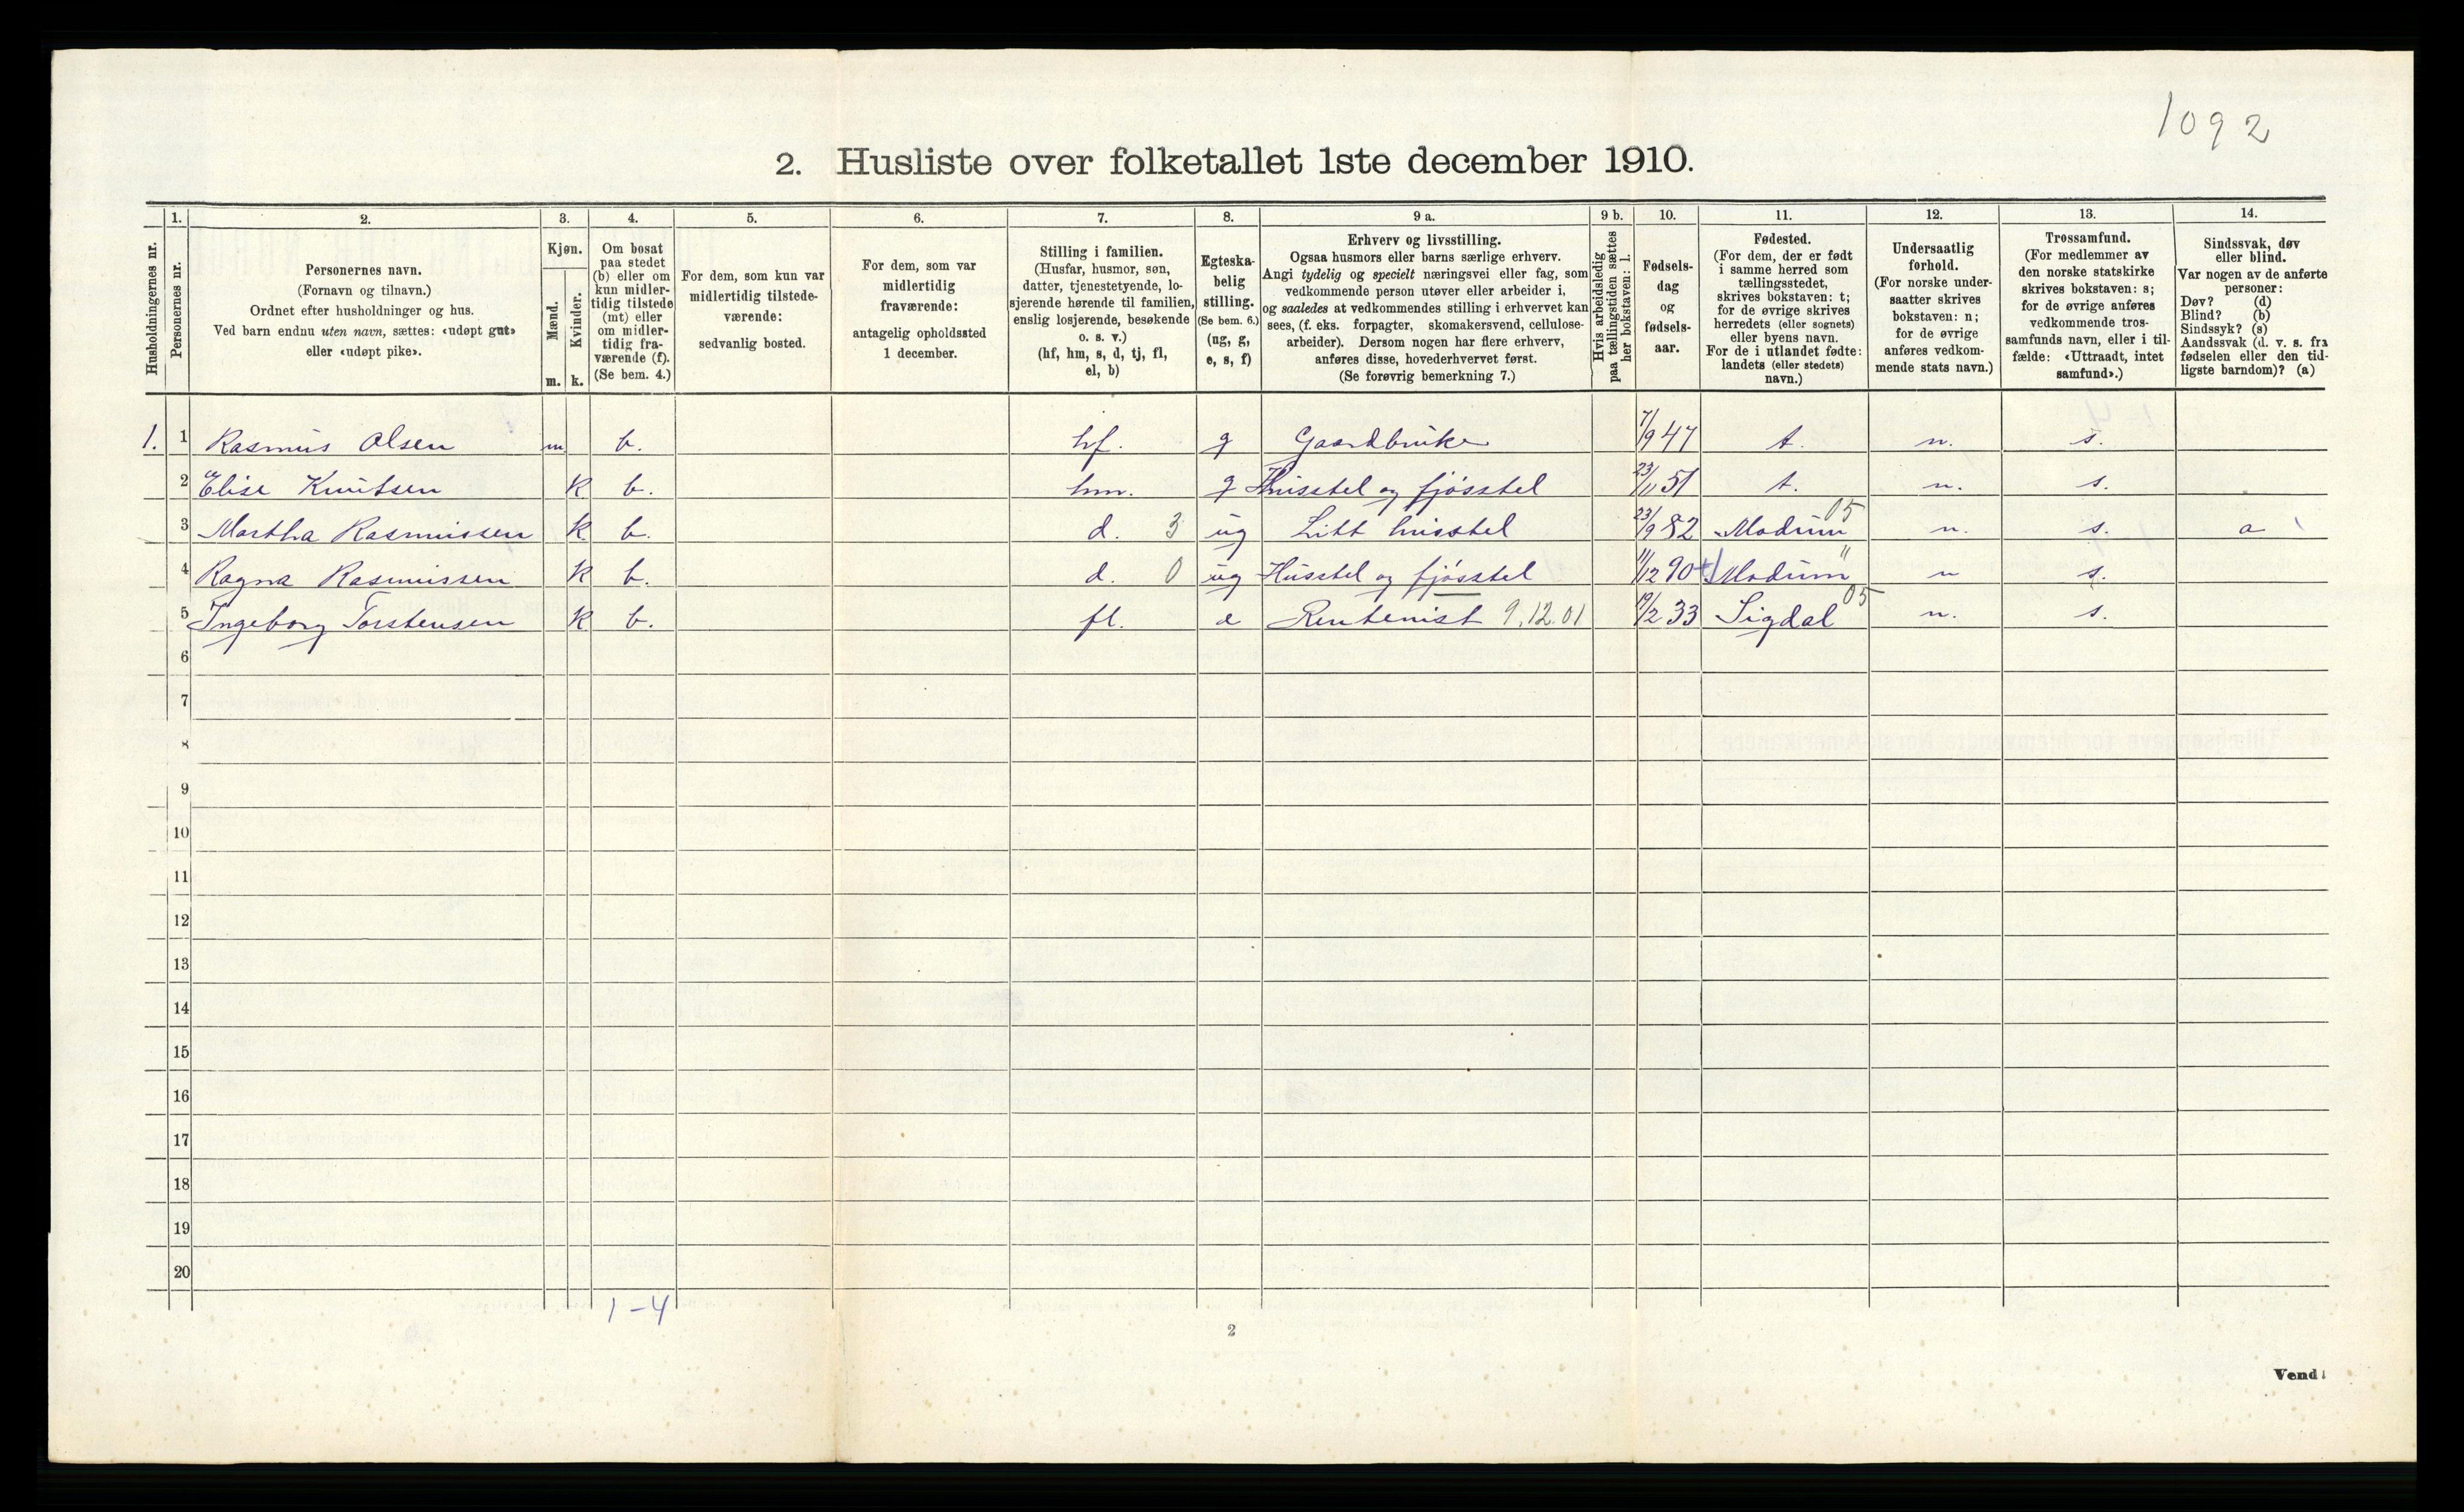 1092
2. Husliste over folketallet 1ste december 1910.
Husholdningernes nr.
1.
Personernes nr.
2.
Personernes navn.
(Fornavn og tilnavn.)
Ordnet efter husholdninger og hus.
Ved barn endnu uten navn, sættes: «udøpt gut»
eller «udøpt pike».
3.
Kjøn.
Mænd.
m.
Kvinder.
k.
4.
Om bosat
paa stedet
(b) eller om
kun midler-
tidig tilstede
(mt) eller
om midler-
tidig fra-
værende (f).
(Se bem. 4.)
5.
For dem, som kun var
midlertidig tilstede-
værende:
sedvanlig bosted.
6.
For dem, som var
midlertidig
fraværende:
antagelig opholdssted
1 december.
7.
Stilling i familien.
(Husfar, husmor, søn,
datter, tjenestetyende, lo-
sjerende hørende til familien,
enslig losjerende, besøkende
o. s. v.)
(hf, hm, s, d, tj, fl,
el, b)
8.
Egteska-
belig
stilling.
(Se bem. 6.)
(ug, g,
e, s, f)
9 a.
Erhverv og livsstilling.
Ogsaa husmors eller barns særlige erhverv.
Angi tydelig og specielt næringsvei eller fag, som
vedkommende person utøver eller arbeider i,
og saaledes at vedkommendes stilling i erhvervet kan
sees, (f. eks. forpagter, skomakersvend, cellulose-
arbeider). Dersom nogen har flere erhverv,
anføres disse, hovederhvervet først.
(Se forøvrig bemerkning 7.)
9 b.
Hvis arbeidsledig
paa tællingstiden sættes
her bokstaven: l.
10.
Fødsels-
dag
og
fødsels-
aar.
11.
Fødested.
(For dem, der er født
i samme herred som
tællingsstedet,
skrives bokstaven: t;
for de øvrige skrives
herredets (eller sognets)
eller byens navn.
For de i utlandet fødte:
landets (eller stedets)
navn.)
12.
Undersaatlig
forhold.
(For norske under-
saatter skrives
bokstaven: n;
for de øvrige
anføres vedkom-
mende stats navn.)
13.
Trossamfund.
(For medlemmer av
den norske statskirke
skrives bokstaven: s;
for de øvrige anføres
vedkommende tros-
samfunds navn, eller i til-
fælde: «Uttraadt, intet
samfund».)
14.
Sindssvak, døv
eller blind.
Var nogen av de anførte
personer:
Døv? (d)
Blind? (b)
Sindssyk? (s)
Aandssvak (d. v. s. fra
fødselen eller den tid-
ligste barndom)? (a)
1. 1 Rasmus Olsen m b. hf. g Gaardbruker 7/9 47 t. n. s.
2 Elise Knutsen k b. hm. g Husstel og fjøsstel 23/11 51 t. n. s.
3 Martha Rasmussen k b. d. 3 ug Litt husstel 23/9 82 Modum 05 n. s. a
4 Ragna Rasmussen k b. d. 0 ug Husstel og fjøsstel 11/12 90 Modum " n s.
5 Ingeborg Torstensen k b. fl. e Rentenist 9.12.01 19/2 33 Sigdal 05 n. s.
6
7
8
9
10
11
12
13
14
15
16
17
18
19
20
1-4
2
Vend!